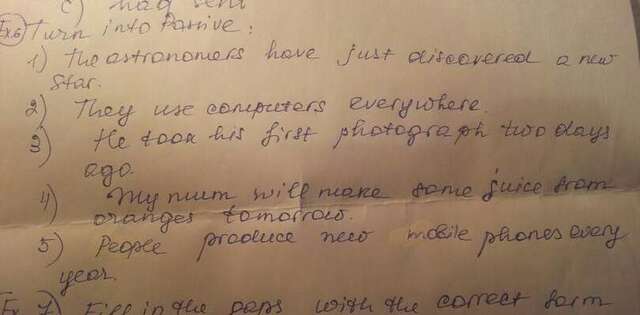 c) had sent
Ex6 Turn into Passive:
1) The astronomers have just discovered a new
star.
2) They use computers everywhere.
3) He took his first photograph two days
ago.
4) My mum will make some juice from
oranges tomorrow.
5) People produce new mobile phones every
year.
Ex. 7) Fill in the gaps with the correct form